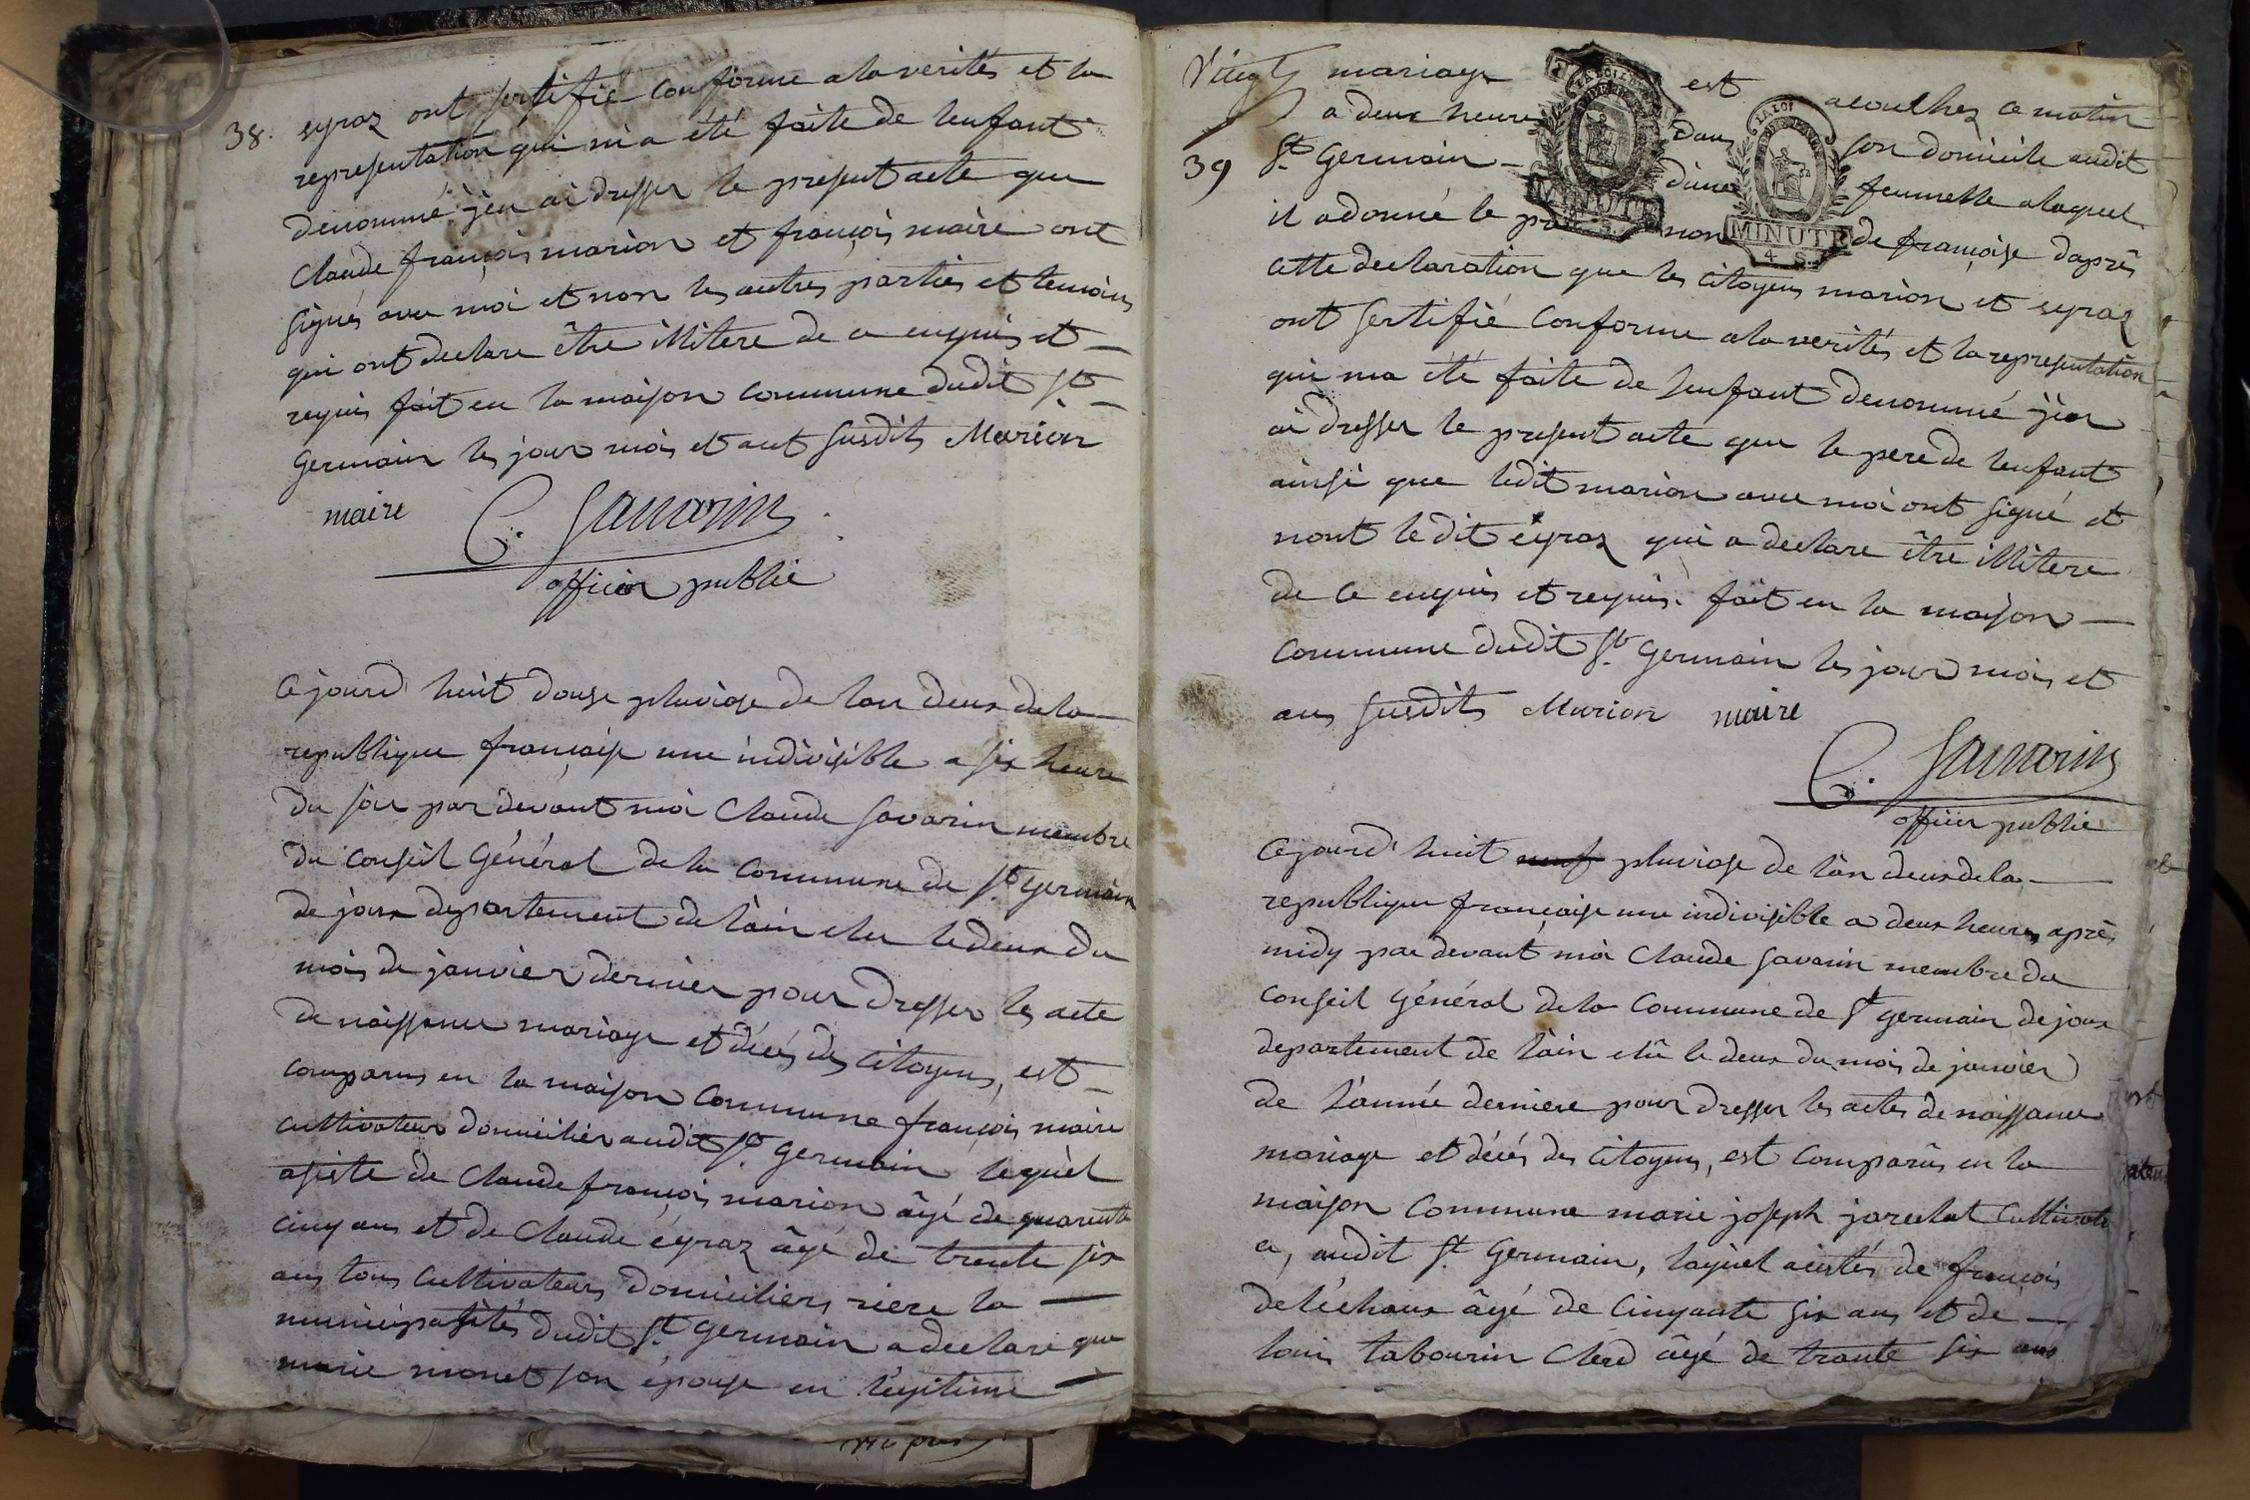 38.
eyraz ont sertifié conforme a la verités et la
representation qui m'a été faite de lenfant
denommé jen ai dresser le present acte que
Claude françois marion et françois maire ont
signés avec moi et non les autres parties et temoins
qui ont declare être illitere de ce enquis et
requis fait en la maison commune dudit St
Germain les jour mois et ant susdits Marion
maire C. Savarin
officier public
Cejourd'huit douze pluviose de lan deux dela
republique françaisse une indivisible a six heure
du soir par devant moi Claude Savarin membre
du Conseil Général de la Commune de St Germain
de joux departement de lain elu le deux du
mois de janvier dernier pour dresser les acte
de naissance mariage et décés des citoyens, est
comparus en la maison Commune françois maire
cultivateur domiciliér audit St Germain lequel
asiste de Claude françois marion âgé de quarente
cinq ans et de Claude égraz âgé de trente six
ans tous cultivateurs domiciliers riere la
municipalités dudit St Germain a declare que
marie monet son épouse en légitime
39
mariage est acoulhez ce matin
a deux heure dans son domicile audit
St Germain dune femmelle a laquel
il adonné le nom de françoise daprès
cette declaration que les citoyens marion et eyraz
ont sertifié conforme a la verités et la representation
qui ma été faite de lenfant denommé jèn
ai dresser le present acte que le pere de lenfant
ainsi que ledit marion avec moi ont signé et
nont le dit eyraz qui a declare être illitere
de ce enquis et requis. fait en la maison
commune dudit St Germain les jour mois et
ans susdits Marion maire
C. Savarin
officier public
Cejourd'huit neuf pluviose de làn deux de la
republique françaisse une indivisible a deux heures après
midy par devant moi Claude Savarin membre du
Conseil Général de la Commune de St germain de joux
departement de làin elû le deux du mois de janvier
de l'année derniere pour dresser les actes de naissance
mariage et décés des citoyens, est comparûs en la
maison Commune marie joseph jarclat Cultivate
audit St Germain, laquel acistés de françois
deléchaux âgé de cinquante six ans et de
louis tabourin Clerd âgé de trante six ans